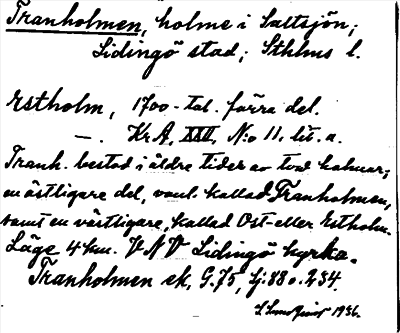 Tranholmen, holme i Saltsjön;
Lidingö stad; Sthlms l.
Estholm, 1700-tal. förra del.
—. Kr. A, XXII, N:o 11. lit. a.
Tranh. bestod i äldre tider av två holmar;
en östligare del, vanl. kallad Tranholmen,
samt en västligare, kallad Öst- eller Estholm.
Läge 4 km. V.N.V Lidingö kyrka.
Tranholmen ek, G. 75, Ij: 880. 234.
1936.